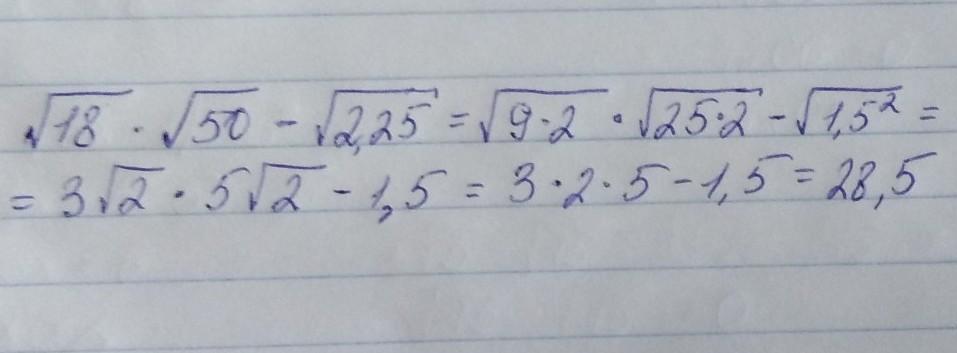 √18 · √50 - √2,25 = √9·2 · √25·2 - √1,5² =
= 3√2 · 5√2 - 1,5 = 3·2·5 - 1,5 = 28,5